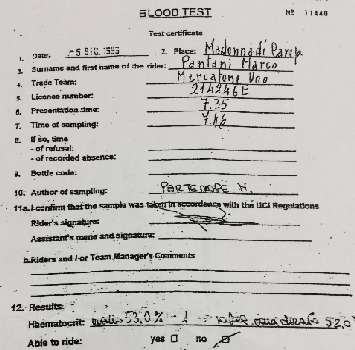 BLOOD TEST
Nº 11448
Test certificate
1. Date: -5 GIU. 1999 2. Place: Madonna di
3. Surname and first name of the rider: Pantani Marco
4. Trade Team: Mercatone Uno
5. License number:
6. Presentation time: 7.35
7. Time of sampling:
8. If so, time
- of refusal:
- of recorded absence:
9. Bottle code:
10. Author of sampling: PARTENOPE M.
11a. I confirm that the sample was taken in accordance with the UCI Regulations
Rider's signature:
Assistant's name and signature:
b. Riders and / or Team Manager's Comments
12. Results:
Haematocrit: 53,0% - 1 52,0
Able to ride: yes no